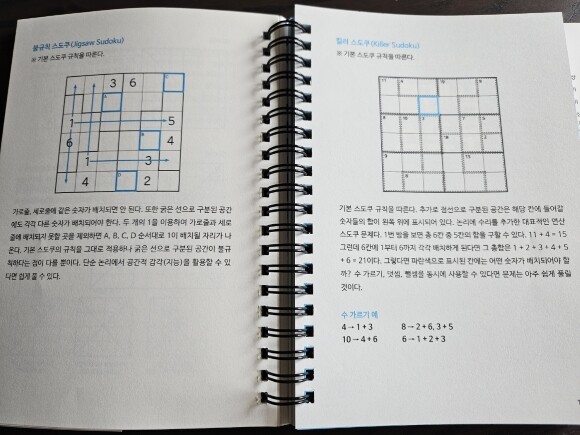 불규칙 스도쿠(Jigsaw Sudoku)
※ 기본 스도쿠 규칙을 따른다.
3 6
1 5
6 4
1 3
4 2
가로줄, 세로줄에 같은 숫자가 배치되면 안 된다. 또한 굵은 선으로 구분된 공간
에도 각각 다른 숫자가 배치되어야 한다. 두 개의 1을 이용하여 가로줄과 세로
줄에 배치되지 못할 곳을 제외하면 A, B, C, D 순서대로 1이 배치될 자리가 나
온다. 기본 스도쿠의 규칙을 그대로 적용하나 굵은 선으로 구분된 공간이 불규
칙하다는 점이 다를 뿐이다. 단순 논리에서 공간적 감각(지능)을 활용할 수 있
다면 쉽게 풀 수 있다.
킬러 스도쿠(Killer Sudoku)
※ 기본 스도쿠 규칙을 따른다.
11 4 10 9
9 10 3 7 6
10 2
4 13
8
기본 스도쿠 규칙을 따른다. 추가로 점선으로 구분된 공간은 해당 칸에 들어갈
숫자들의 합이 왼쪽 위에 표시되어 있다. 논리에 수리를 추가한 대표적인 연산
스도쿠 문제다. 1번 방을 보면 총 6칸 중 5칸의 합을 구할 수 있다. 11 + 4 = 15
그런데 6칸에 1부터 6까지 각각 배치하게 된다면 그 총합은 1 + 2 + 3 + 4 + 5
+ 6 = 21이다. 그렇다면 파란색으로 표시된 칸에는 어떤 숫자가 배치되어야 할
까? 수 가르기, 덧셈, 뺄셈을 동시에 사용할 수 있다면 문제는 아주 쉽게 풀릴
것이다.
수 가르기 예
4 → 1 + 3 8 → 2 + 6, 3 + 5
10 → 4 + 6 6 → 1 + 2 + 3